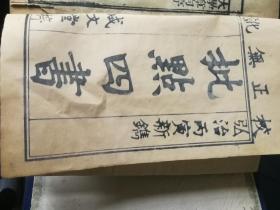 校正無訛
弘治丙寅新鐫
批點四書
文堂